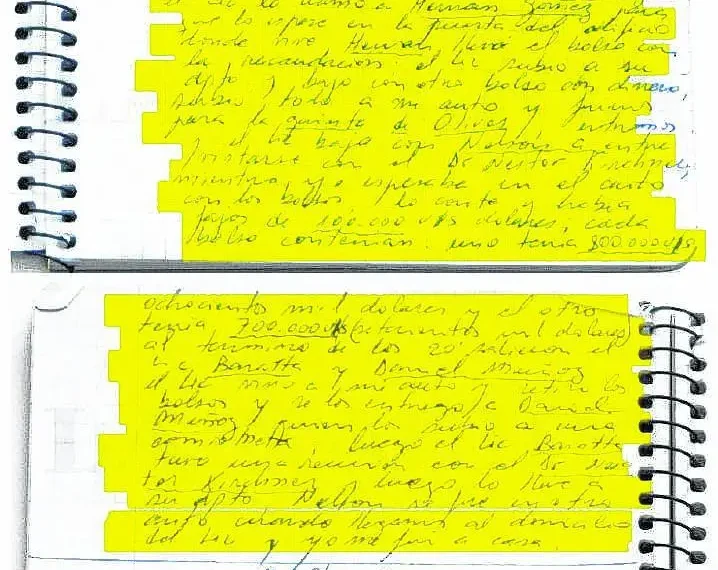 el Lic lo llamo a Hernan Gomez para
que lo espere en la puerta del edificio
donde vive Hernan llevó el bolso con
la recaudacion el Lic subio a su
dpto y bajo con otro bolso con dinero,
subio todo a mi auto y fuimos
para la quinta de Olivos, entramos
y el Lic bajo con Nelson a entre
vistarse con el Dr Nestor Kirchner,
mientras yo esperaba en el auto
con los bolsos lo conte y habia
fajos de 100.000 u$s dolares, cada
bolso contenian. uno tenia 800.000 u$s
ochocientos mil dolares y el otro
tenia 700.000 u$s (setecientos mil dolares)
al termino de los 20' salieron el
Lic Baratta y Daniel Muñoz
el Lic vino a mi auto y retiro los
bolsos y se los entrego a Daniel
Muñoz, quien los subio a una
camioneta, luego el Lic Baratta
tuvo una reunion con el Dr Nes
tor Kirchner y luego lo lleve a
su dpto Nelson se fue en otro
auto cuando llegamos al domicilio
del Lic y yo me fui a casa.